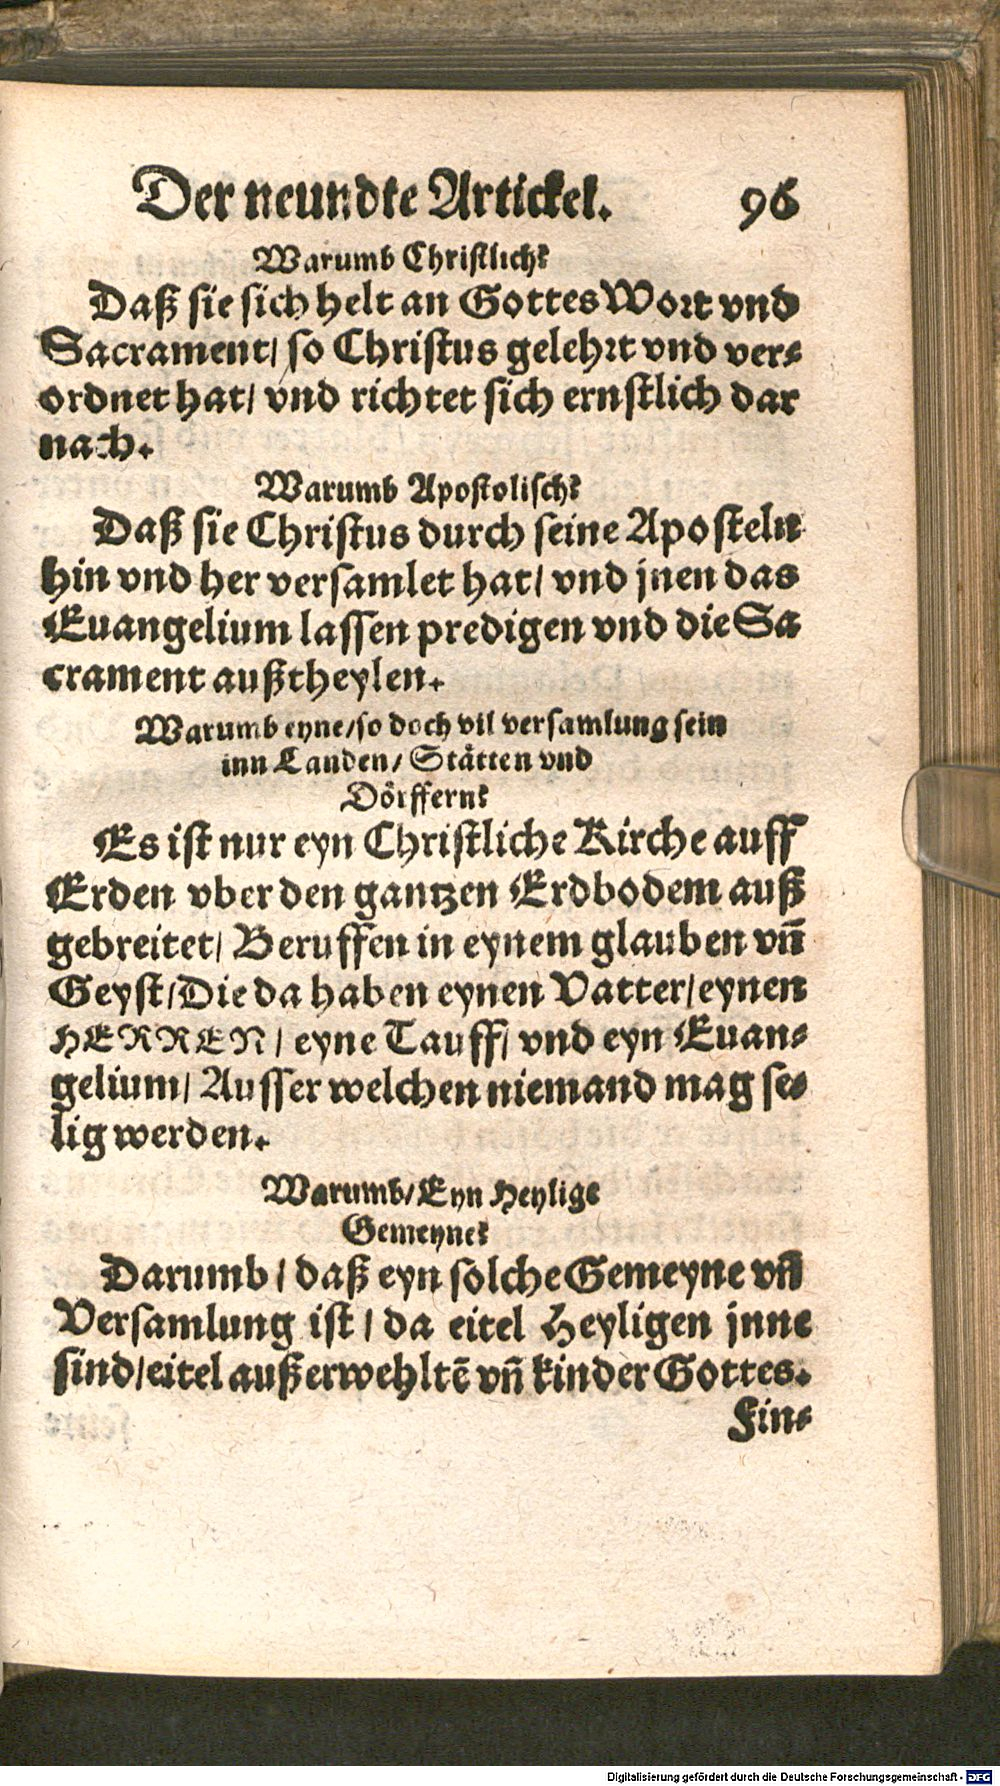 Der neundte Artickel. 96
Warumb Christlich?
Daß sie sich helt an Gottes Wort vnd
Sacrament/ so Christus gelehrt vnd ver-
ordnet hat/ vnd richtet sich ernstlich dar
nach.
Warumb Apostolisch?
Daß sie Christus durch seine Aposteln
hin vnd her versamlet hat/ vnd jnen das
Euangelium lassen predigen vnd die Sa
crament außtheylen.
Warumb eyne/ so doch vil versamlung sein
inn Landen/ Stätten vnd
Dörffern?
Es ist nur eyn Christliche Kirche auff
Erden vber den gantzen Erdbodem auß
gebreitet/ Beruffen in eynem glauben vñ
Geyst/ Die da haben eynen Vatter/ eynen
HERREN/ eyne Tauff/ vnd eyn Euan-
gelium/ Ausser welchen niemand mag se-
lig werden.
Warumb/ Eyn Heylige
Gemeyne?
Darumb/ daß eyn solche Gemeyne vñ
Versamlung ist/ da eitel Heyligen jnne
sind/ eitel außerwehltē vñ kinder Gottes.
Fin-
Digitalisierung gefördert durch die Deutsche Forschungsgemeinschaft - DFG